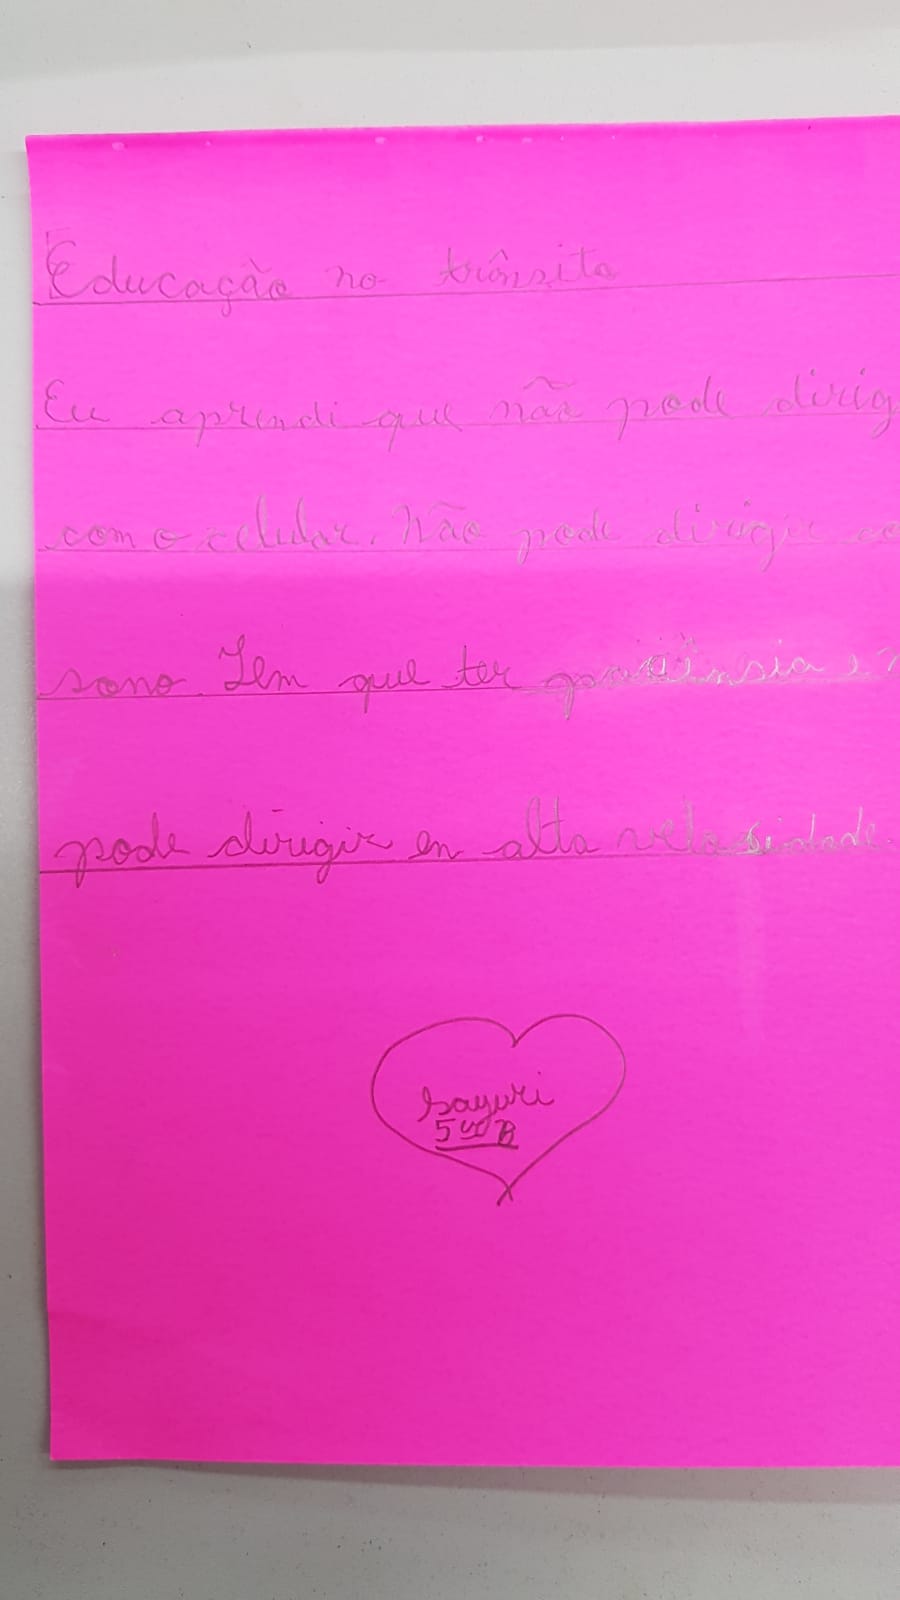 Educação no trânsito
Eu aprendi que não pode dirig
com o celular. Não pode dirigir co
sono. Tem que ter pasiênsia e n
pode dirigir en alta velosidade.
Sayuri
5º B